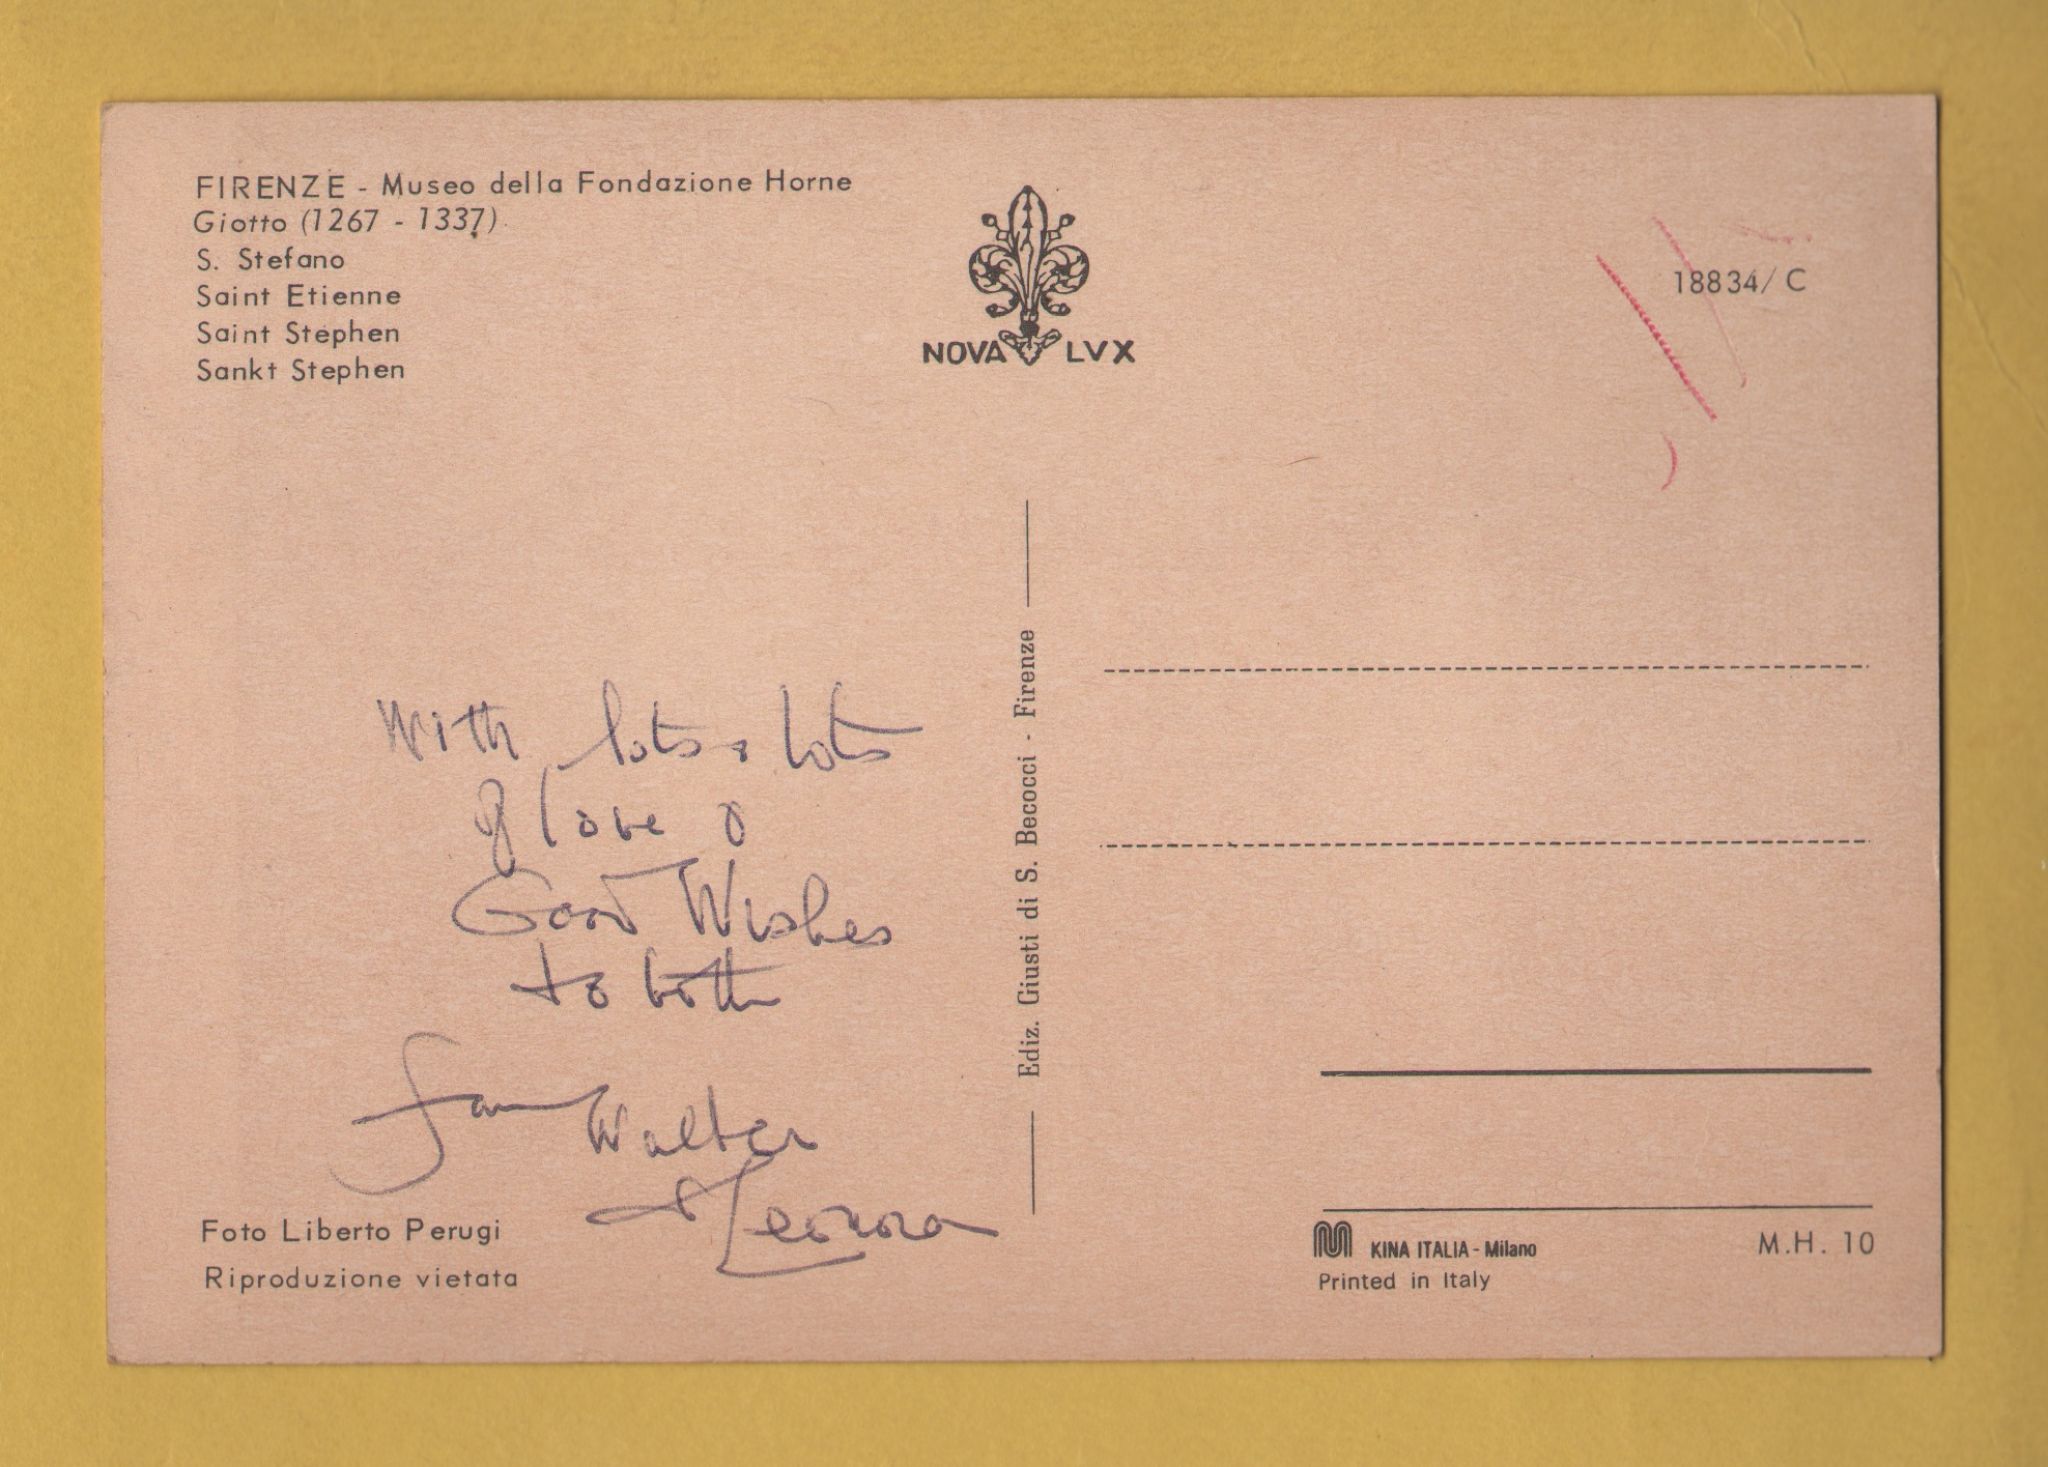 FIRENZE - Museo della Fondazione Horne
Giotto (1267 - 1337)
S. Stefano
Saint Etienne
Saint Stephen
Sankt Stephen
NOVA LVX
18834/ C
With lots & lots
of love &
Good Wishes
to both
from Walter
& Leonora
Ediz. Giusti di S. Becocci - Firenze
Foto Liberto Perugi
Riproduzione vietata
KINA ITALIA - Milano
Printed in Italy
M.H. 10